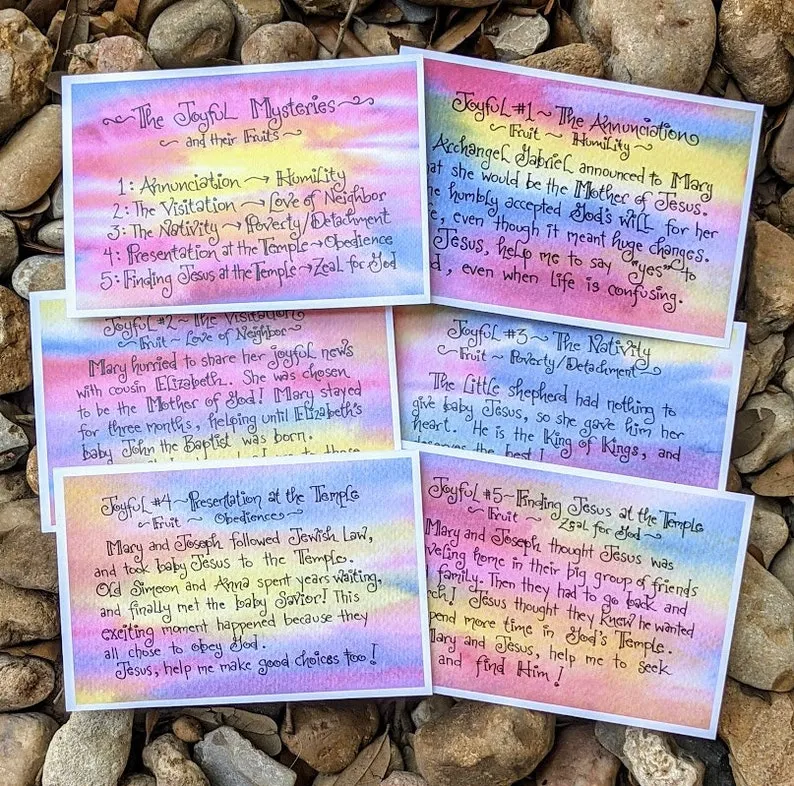 The Joyful Mysteries
~ and their Fruits ~
1: Annunciation → Humility
2: The Visitation → Love of Neighbor
3: The Nativity → Poverty/Detachment
4: Presentation at the Temple → Obedience
5: Finding Jesus at the Temple → Zeal for God
Joyful #1 ~ The Annunciation
~ Fruit ~ Humility ~
Archangel Gabriel announced to Mary
she would be the Mother of Jesus.
humbly accepted God's will for her
even though it meant huge changes.
Jesus, help me to say "yes" to
even when life is confusing.
Joyful #2 ~ The Visitation
~ Fruit ~ Love of Neighbor ~
Mary hurried to share her joyful news
with cousin Elizabeth. She was chosen
to be the Mother of God! Mary stayed
for three months, helping until Elizabeth's
baby John the Baptist was born.
Joyful #3 ~ The Nativity
~ Fruit ~ Poverty/Detachment ~
The little shepherd had nothing to
give baby Jesus, so she gave him her
heart. He is the King of Kings, and
deserves the best!
Joyful #4 ~ Presentation at the Temple
~ Fruit ~ Obedience ~
Mary and Joseph followed Jewish Law,
and took baby Jesus to the Temple.
Old Simeon and Anna spent years waiting,
and finally met the baby Savior! This
exciting moment happened because they
all chose to obey God.
Jesus, help me make good choices too!
Joyful #5 ~ Finding Jesus at the Temple
~ Fruit ~ Zeal for God ~
Mary and Joseph thought Jesus was
home in their big group of friends
family. Then they had to go back and
Jesus thought they knew he wanted
more time in God's Temple.
Mary and Jesus, help me to seek
and find Him!